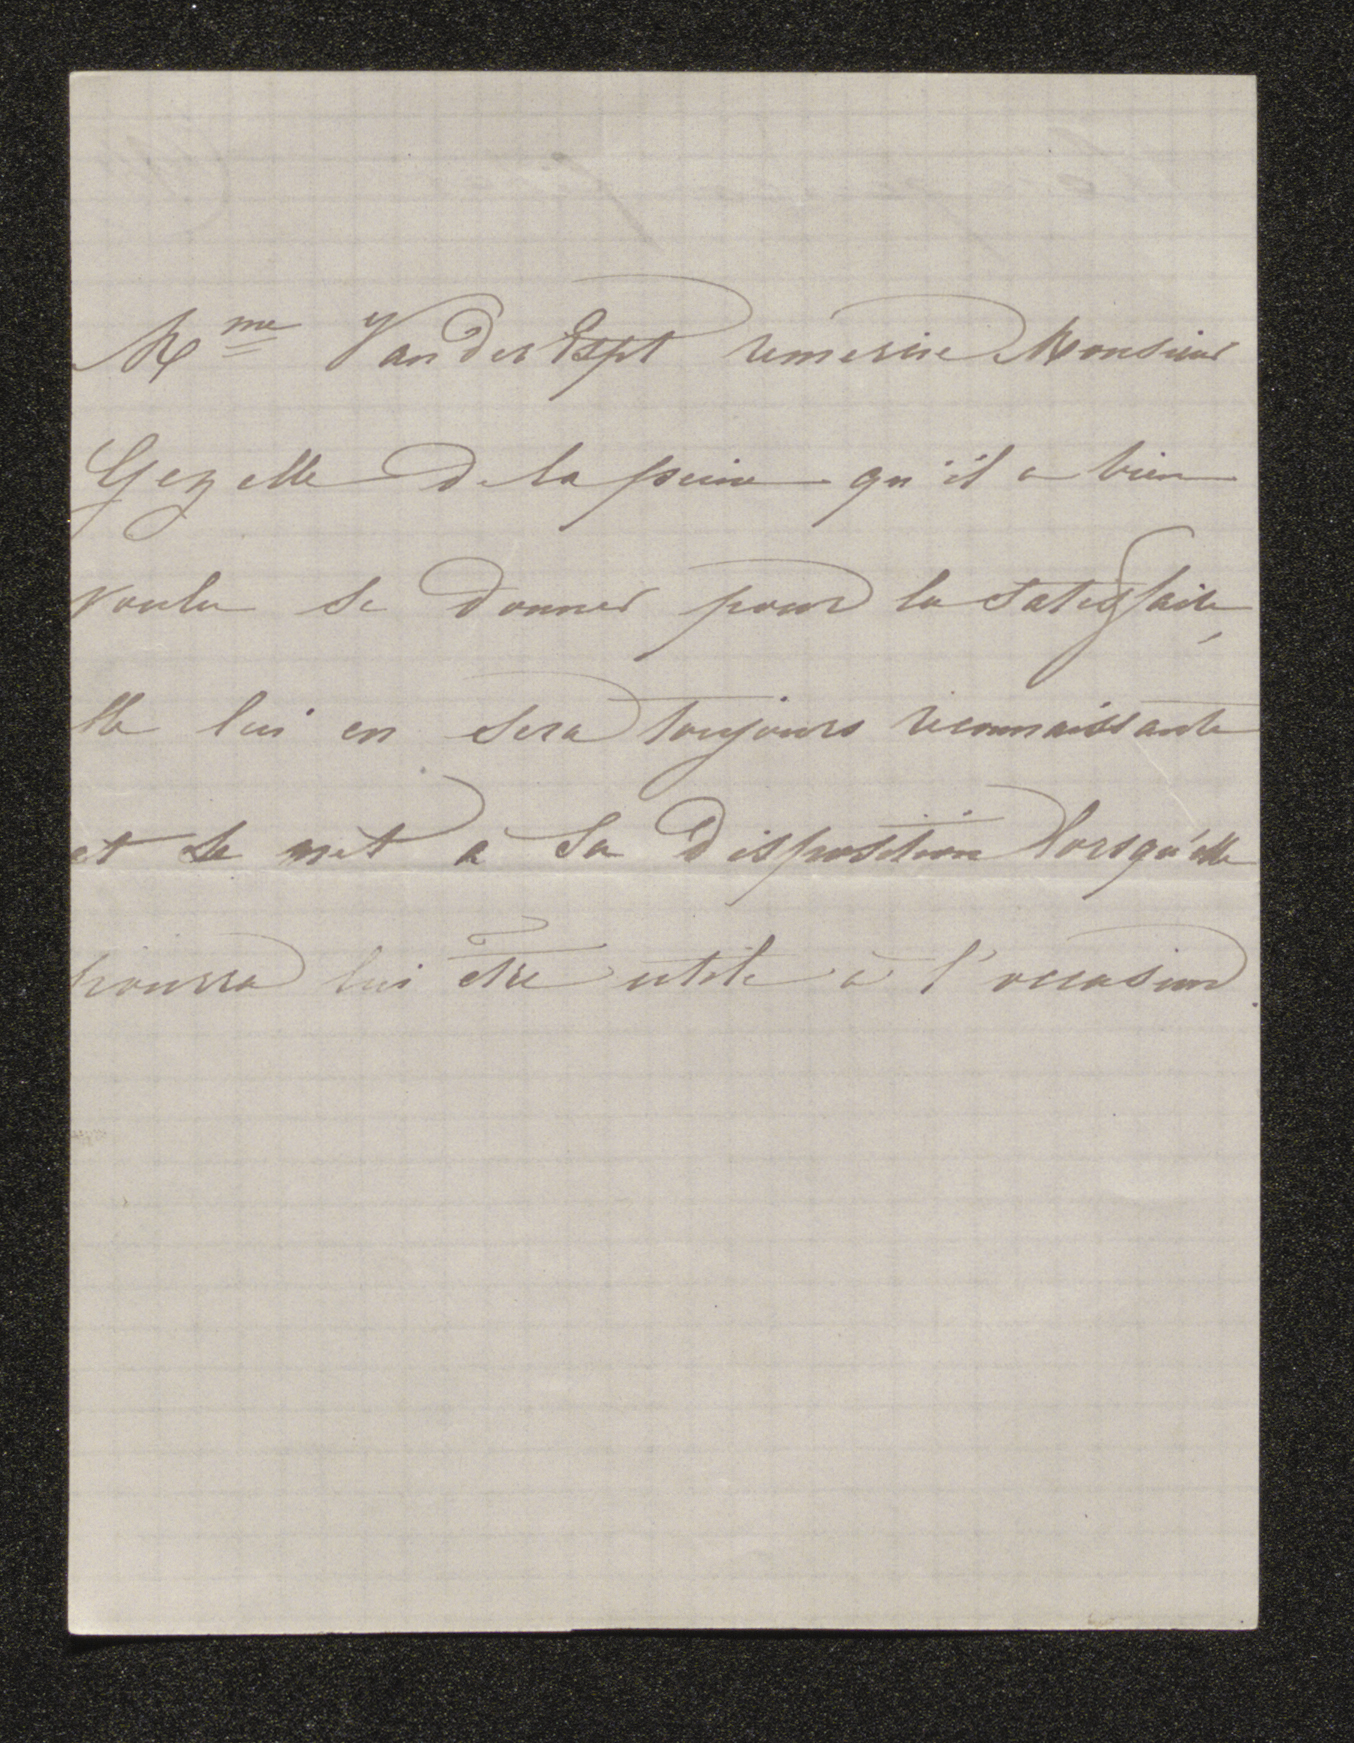 Mme Vander Espt remercie Monsieur
Gezelle de la peine qu'il a bien
voulu se donner pour la satisfaire,
elle lui en sera toujours reconnaissante
et se met a sa disposition lorsqu'elle
pourra lui être utile à l'occasion.